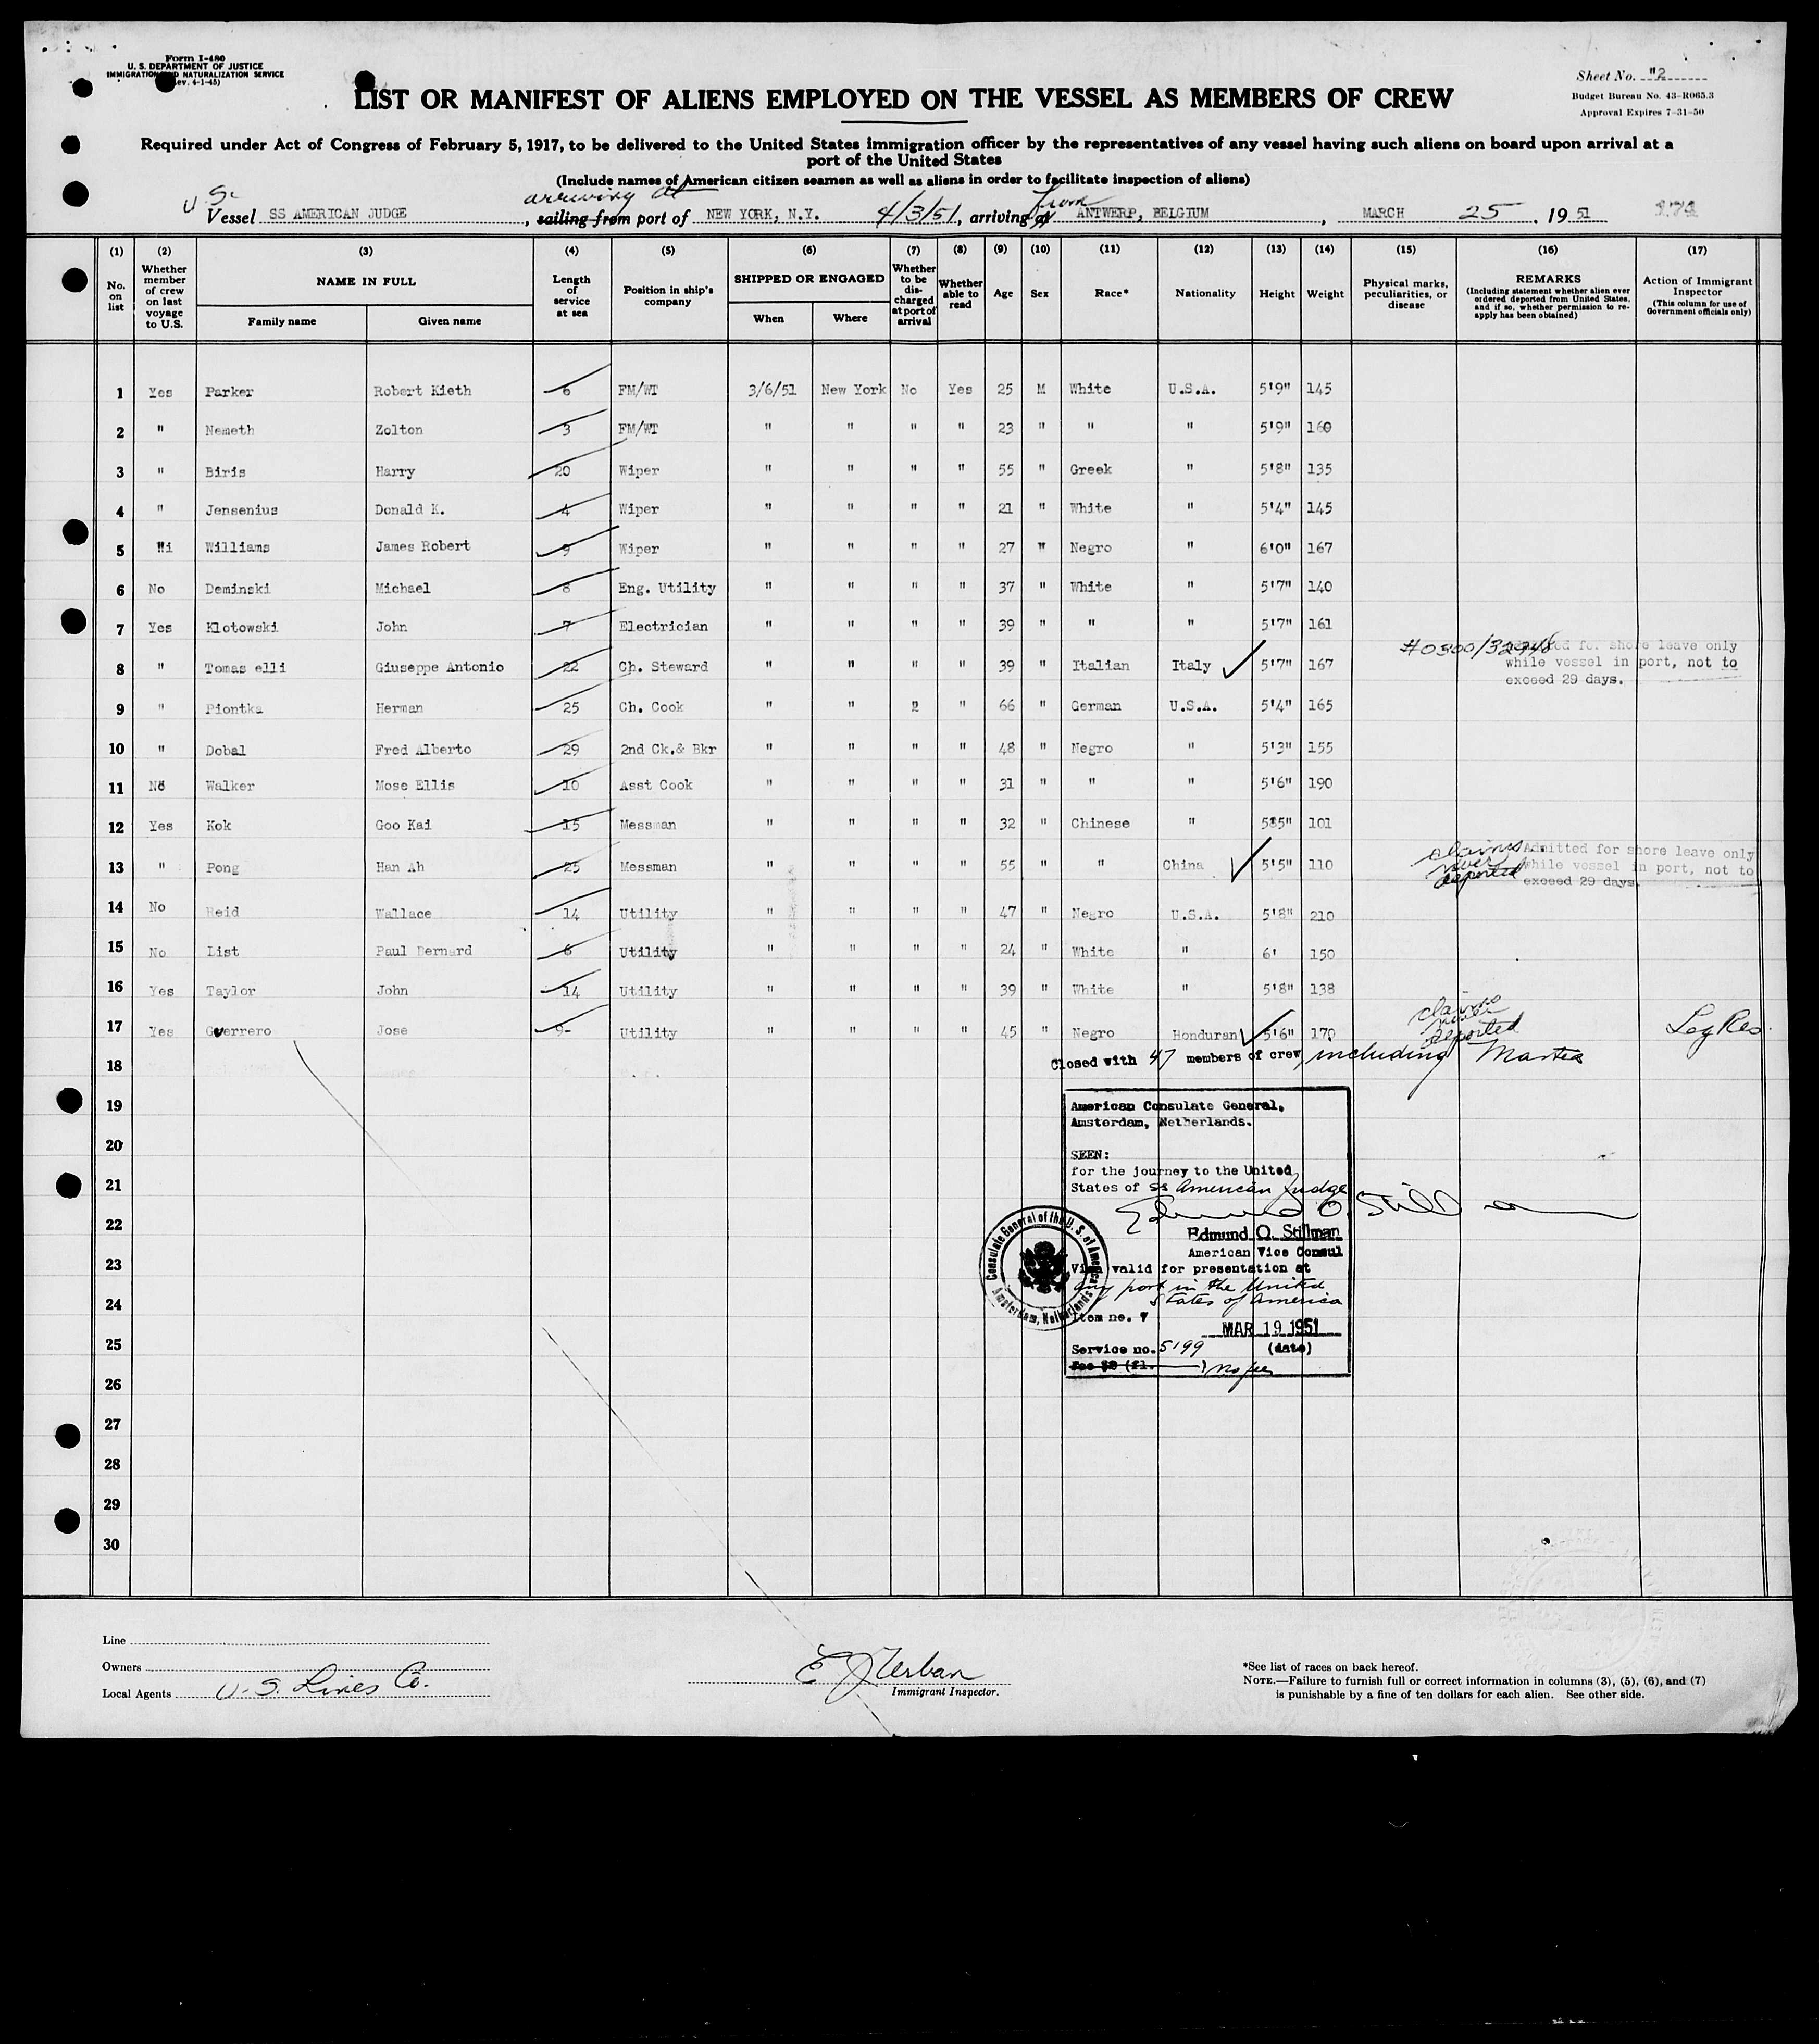 Form I-480
U. S. DEPARTMENT OF JUSTICE
IMMIGRATION AND NATURALIZATION SERVICE
(Rev. 4-1-45)
Sheet No. "2
Budget Bureau No. 43-R065.3
Approval Expires 7-31-50
LIST OR MANIFEST OF ALIENS EMPLOYED ON THE VESSEL AS MEMBERS OF CREW
Required under Act of Congress of February 5, 1917, to be delivered to the United States immigration officer by the representatives of any vessel having such aliens on board upon arrival at a
port of the United States
(Include names of American citizen seamen as well as aliens in order to facilitate inspection of aliens)
U S. arriving at from
Vessel SS AMERICAN JUDGE, sailing from port of NEW YORK, N.Y. 4/3/51, arriving at ANTWERP, BELGIUM, MARCH 25, 19 51
(1) (2) (3) (4) (5) (6) (7) (8) (9) (10) (11) (12) (13) (14) (15) (16) (17)
No. on list
Whether member of crew on last voyage to U.S.
NAME IN FULL
Family name Given name
Length of service at sea
Position in ship's company
SHIPPED OR ENGAGED
When Where
Whether to be discharged at port of arrival
Whether able to read
Age
Sex
Race*
Nationality
Height
Weight
Physical marks, peculiarities, or disease
REMARKS
(Including statement whether alien ever ordered deported from United States, and if so, whether permission to re-apply has been obtained)
Action of Immigrant Inspector
(This column for use of Government officials only)
1 Yes Parker Robert Kieth 6 FM/WT 3/6/51 New York No Yes 25 M White U.S.A. 5'9" 145
2 " Nemeth Zolton 3 FM/WT " " " " 23 " " " 5'9" 160
3 " Biris Harry 20 Wiper " " " " 55 " Greek " 5'8" 135
4 " Jensenius Donald K. 4 Wiper " " " " 21 " White " 5'4" 145
5 Williams James Robert 9 Wiper " " " " 27 " Negro " 6'0" 167
6 No Deminski Michael 8 Eng. Utility " " " " 37 " White " 5'7" 140
7 Yes Klotowski John 7 Electrician " " " " 39 " " " 5'7" 161
8 " Tomas elli Giuseppe Antonio 22 Ch. Steward " " " " 39 " Italian Italy 5'7" 167 #0300/32948 for shore leave only
while vessel in port, not to
exceed 29 days.
9 " Piontka Herman 25 Ch. Cook " " 2 " 66 " German U.S.A. 5'4" 165
10 " Dobal Fred Alberto 29 2nd Ck.& Bkr " " " " 48 " Negro " 5'3" 155
11 No Walker Mose Ellis 10 Asst Cook " " " " 31 " " " 5'6" 190
12 Yes Kok Goo Kai 15 Messman " " " " 32 " Chinese " 585" 101
13 " Pong Han Ah 25 Messman " " " " 55 " " China 5'5" 110 claims never deported Admitted for shore leave only
while vessel in port, not to
exceed 29 days.
14 No Reid Wallace 14 Utility " " " " 47 " Negro U.S.A. 5'8" 210
15 No List Paul Bernard 6 Utility " " " " 24 " White " 6' 150
16 Yes Taylor John 14 Utility " " " " 39 " White " 5'8" 138
17 Yes Guerrero Jose 9- Utility " " " " 45 " Negro Honduran 5'6" 170 claims never deported Leg Res.
18 Closed with 47 members of crew, including Master
19
20
21
22
23
24
25
26
27
28
29
30
American Consulate General,
Amsterdam, Netherlands.
SEEN:
for the journey to the United
States of SS American Judge
Edmund O. Stillman
Edmund O. Stillman
American Vice Consul
Visa valid for presentation at
any port in the United
States of America
Item no. 7
MAR 19 1951
Service no. 5199 (date)
Fee $2 (fl. ) no fee
Consulate General of the U. S. of America
Amsterdam, Netherlands
Line
Owners
Local Agents U. S. Lines Co.
E J Urban
Immigrant Inspector.
*See list of races on back hereof.
NOTE.—Failure to furnish full or correct information in columns (3), (5), (6), and (7)
is punishable by a fine of ten dollars for each alien. See other side.